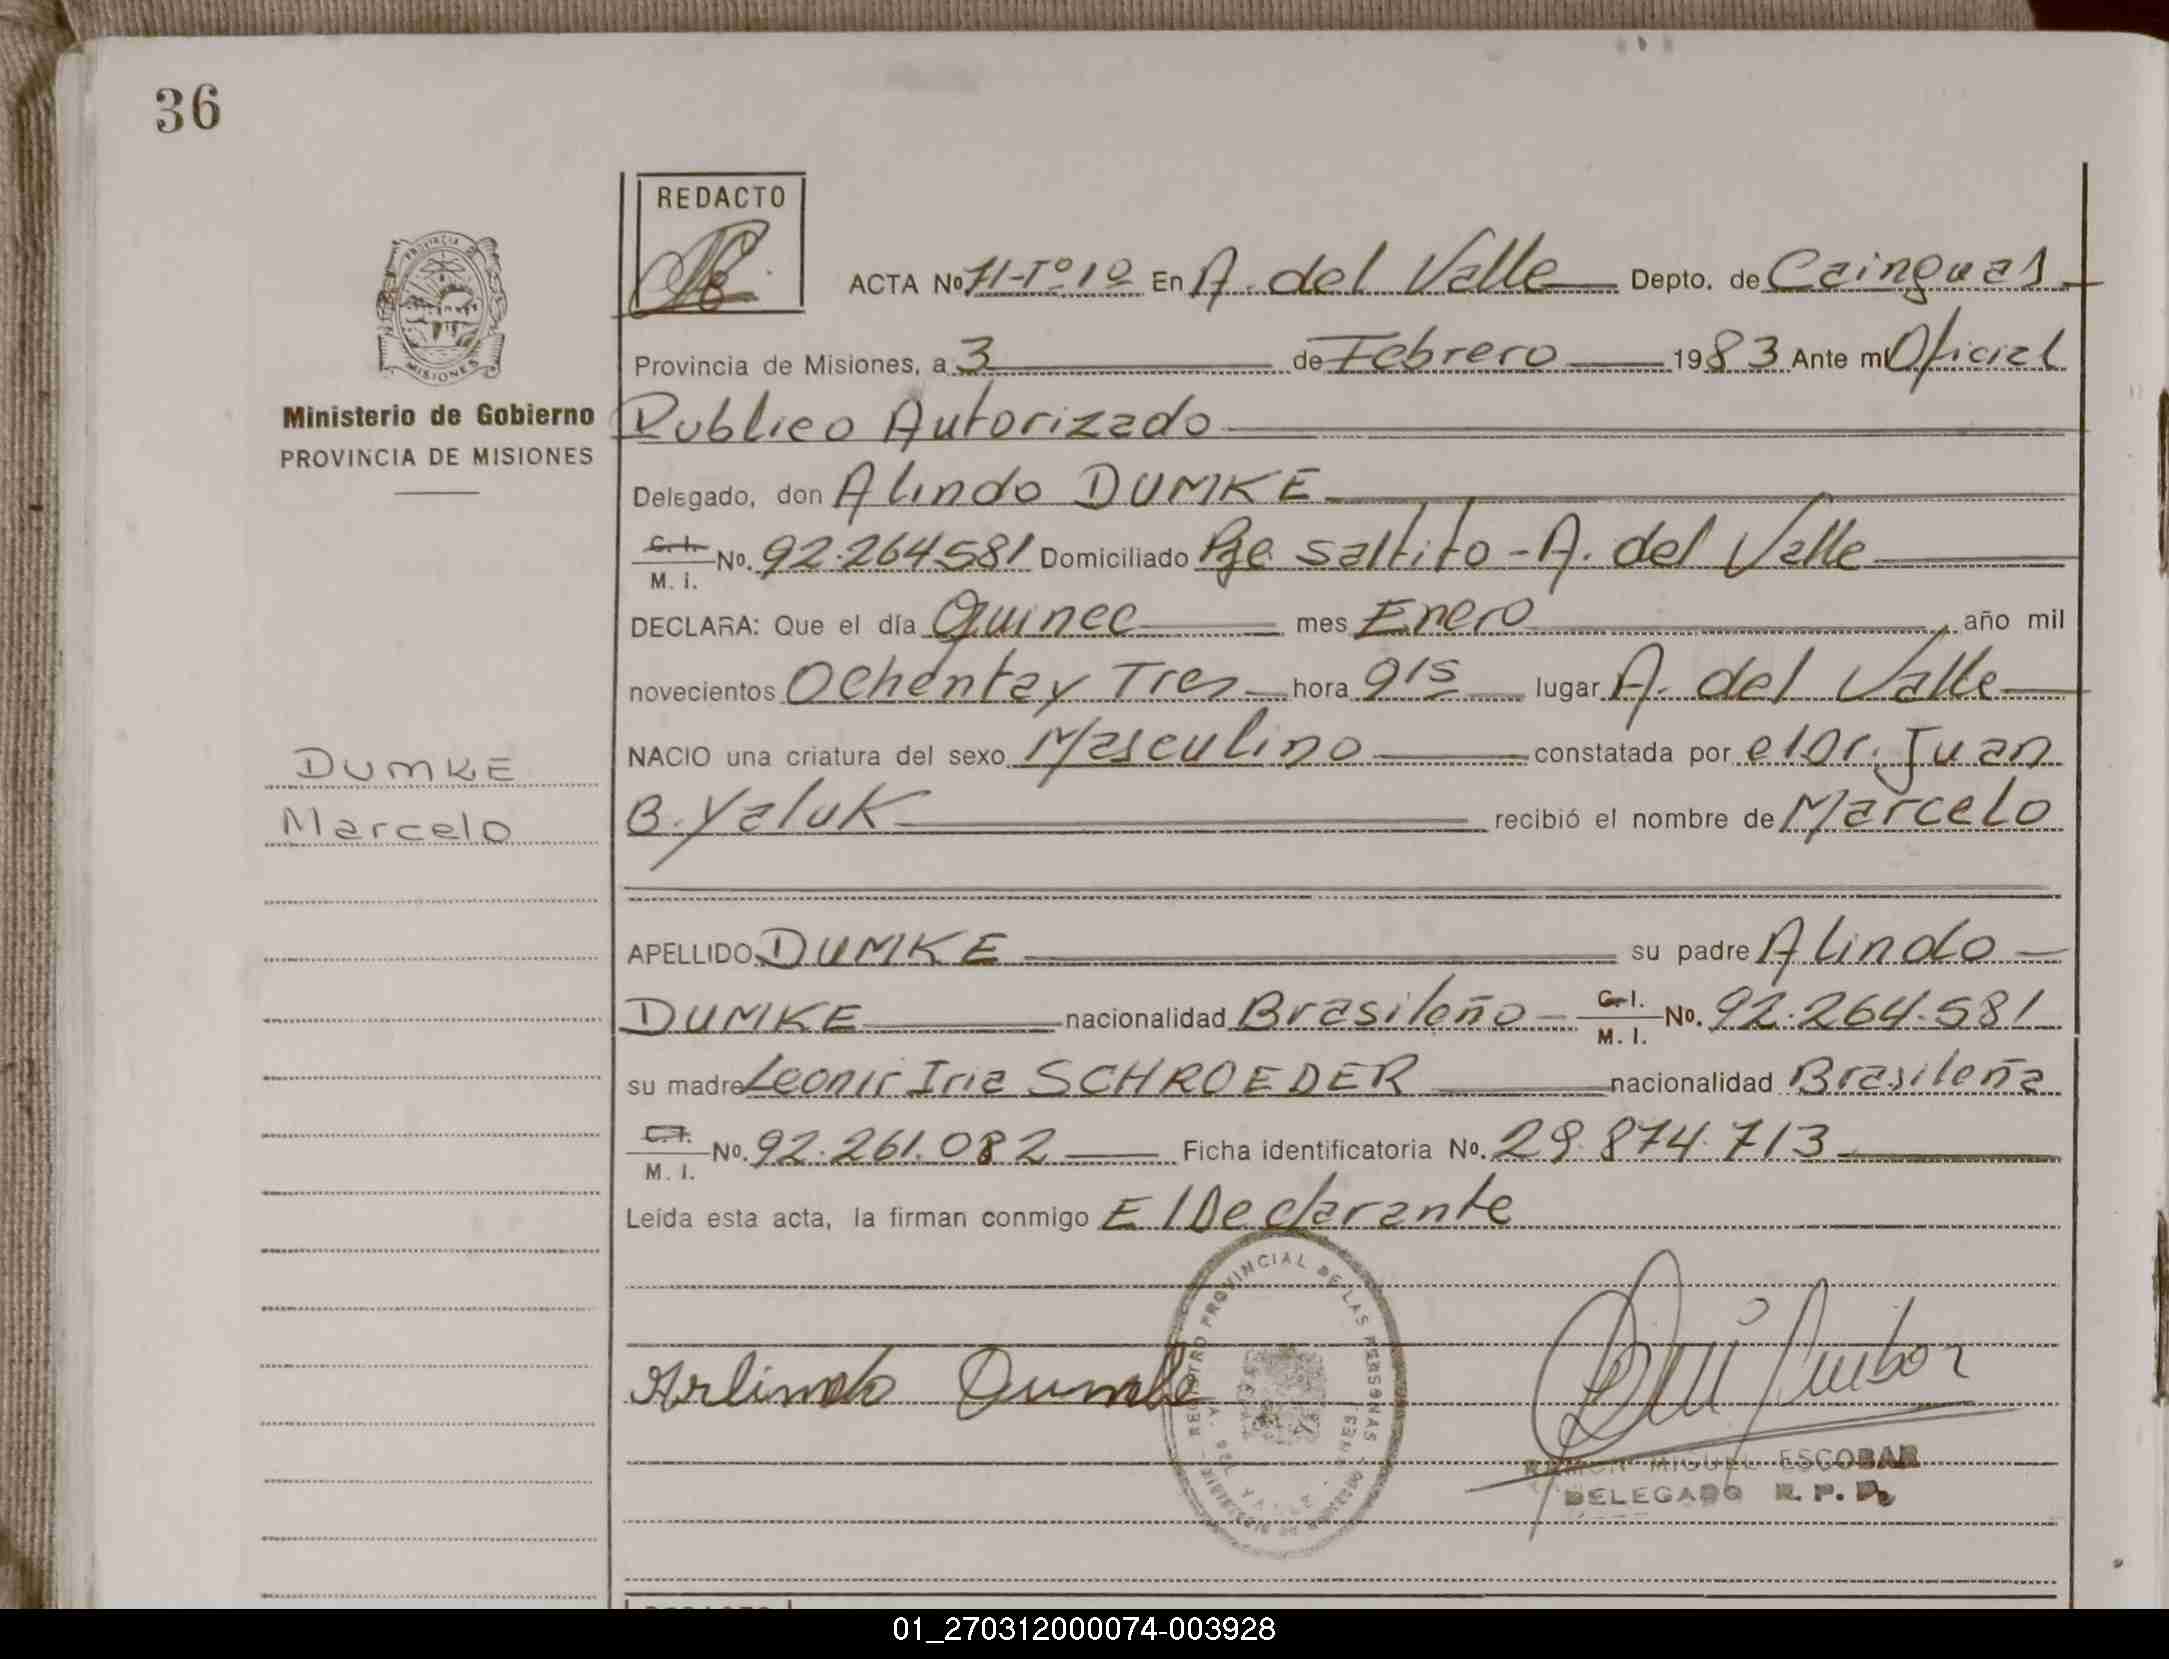 36
REDACTO
ACTA No 71-Tº1º En A. del Valle Depto. de Cainguas
PROVINCIA DE
MISIONES
Provincia de Misiones, a 3 de Febrero 1983 Ante mí Oficial
Ministerio de Gobierno
PROVINCIA DE MISIONES
Publico Autorizado
Delegado, don Alindo DUMKE
C. I. M. I. No. 92.264.581 Domiciliado Pje Saltito - A. del Valle
DECLARA: Que el día Quince mes Enero año mil
novecientos Ochenta y Tres hora 9 15 lugar A. del Valle
NACIO una criatura del sexo Masculino constatada por el Dr. Juan
B. Yaluk recibió el nombre de Marcelo
DUMKE
Marcelo
APELLIDO DUMKE su padre Alindo
DUMKE nacionalidad Brasileño C. I. M. I. No. 92.264.581
su madre Leonir Iria SCHROEDER nacionalidad Brasileña
C. I. M. I. No. 92.261.082 Ficha identificatoria No. 29.874.713
Leída esta acta, la firman conmigo El Declarante
REGISTRO PROVINCIAL DE LAS PERSONAS
A. DEL VALLE
Arlindo Dumke
RAMON MIGUEL ESCOBAR
DELEGADO R. P. P.
REDACTO
01_270312000074-003928